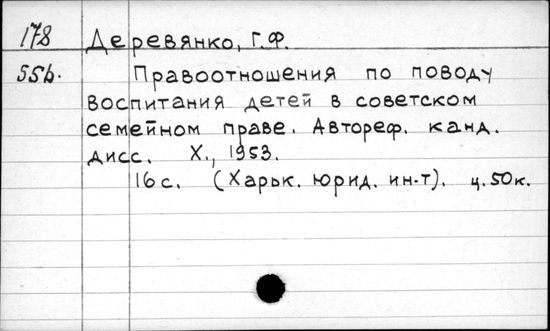 178 Деревянко, Г.Ф.
55b. Правоотношения по поводу
воспитания детей в советском
семейном праве. Автореф. канд.
дисс. Х., 1953.
16 с. (Харьк. юрид. ин-т). ц. 50 к.